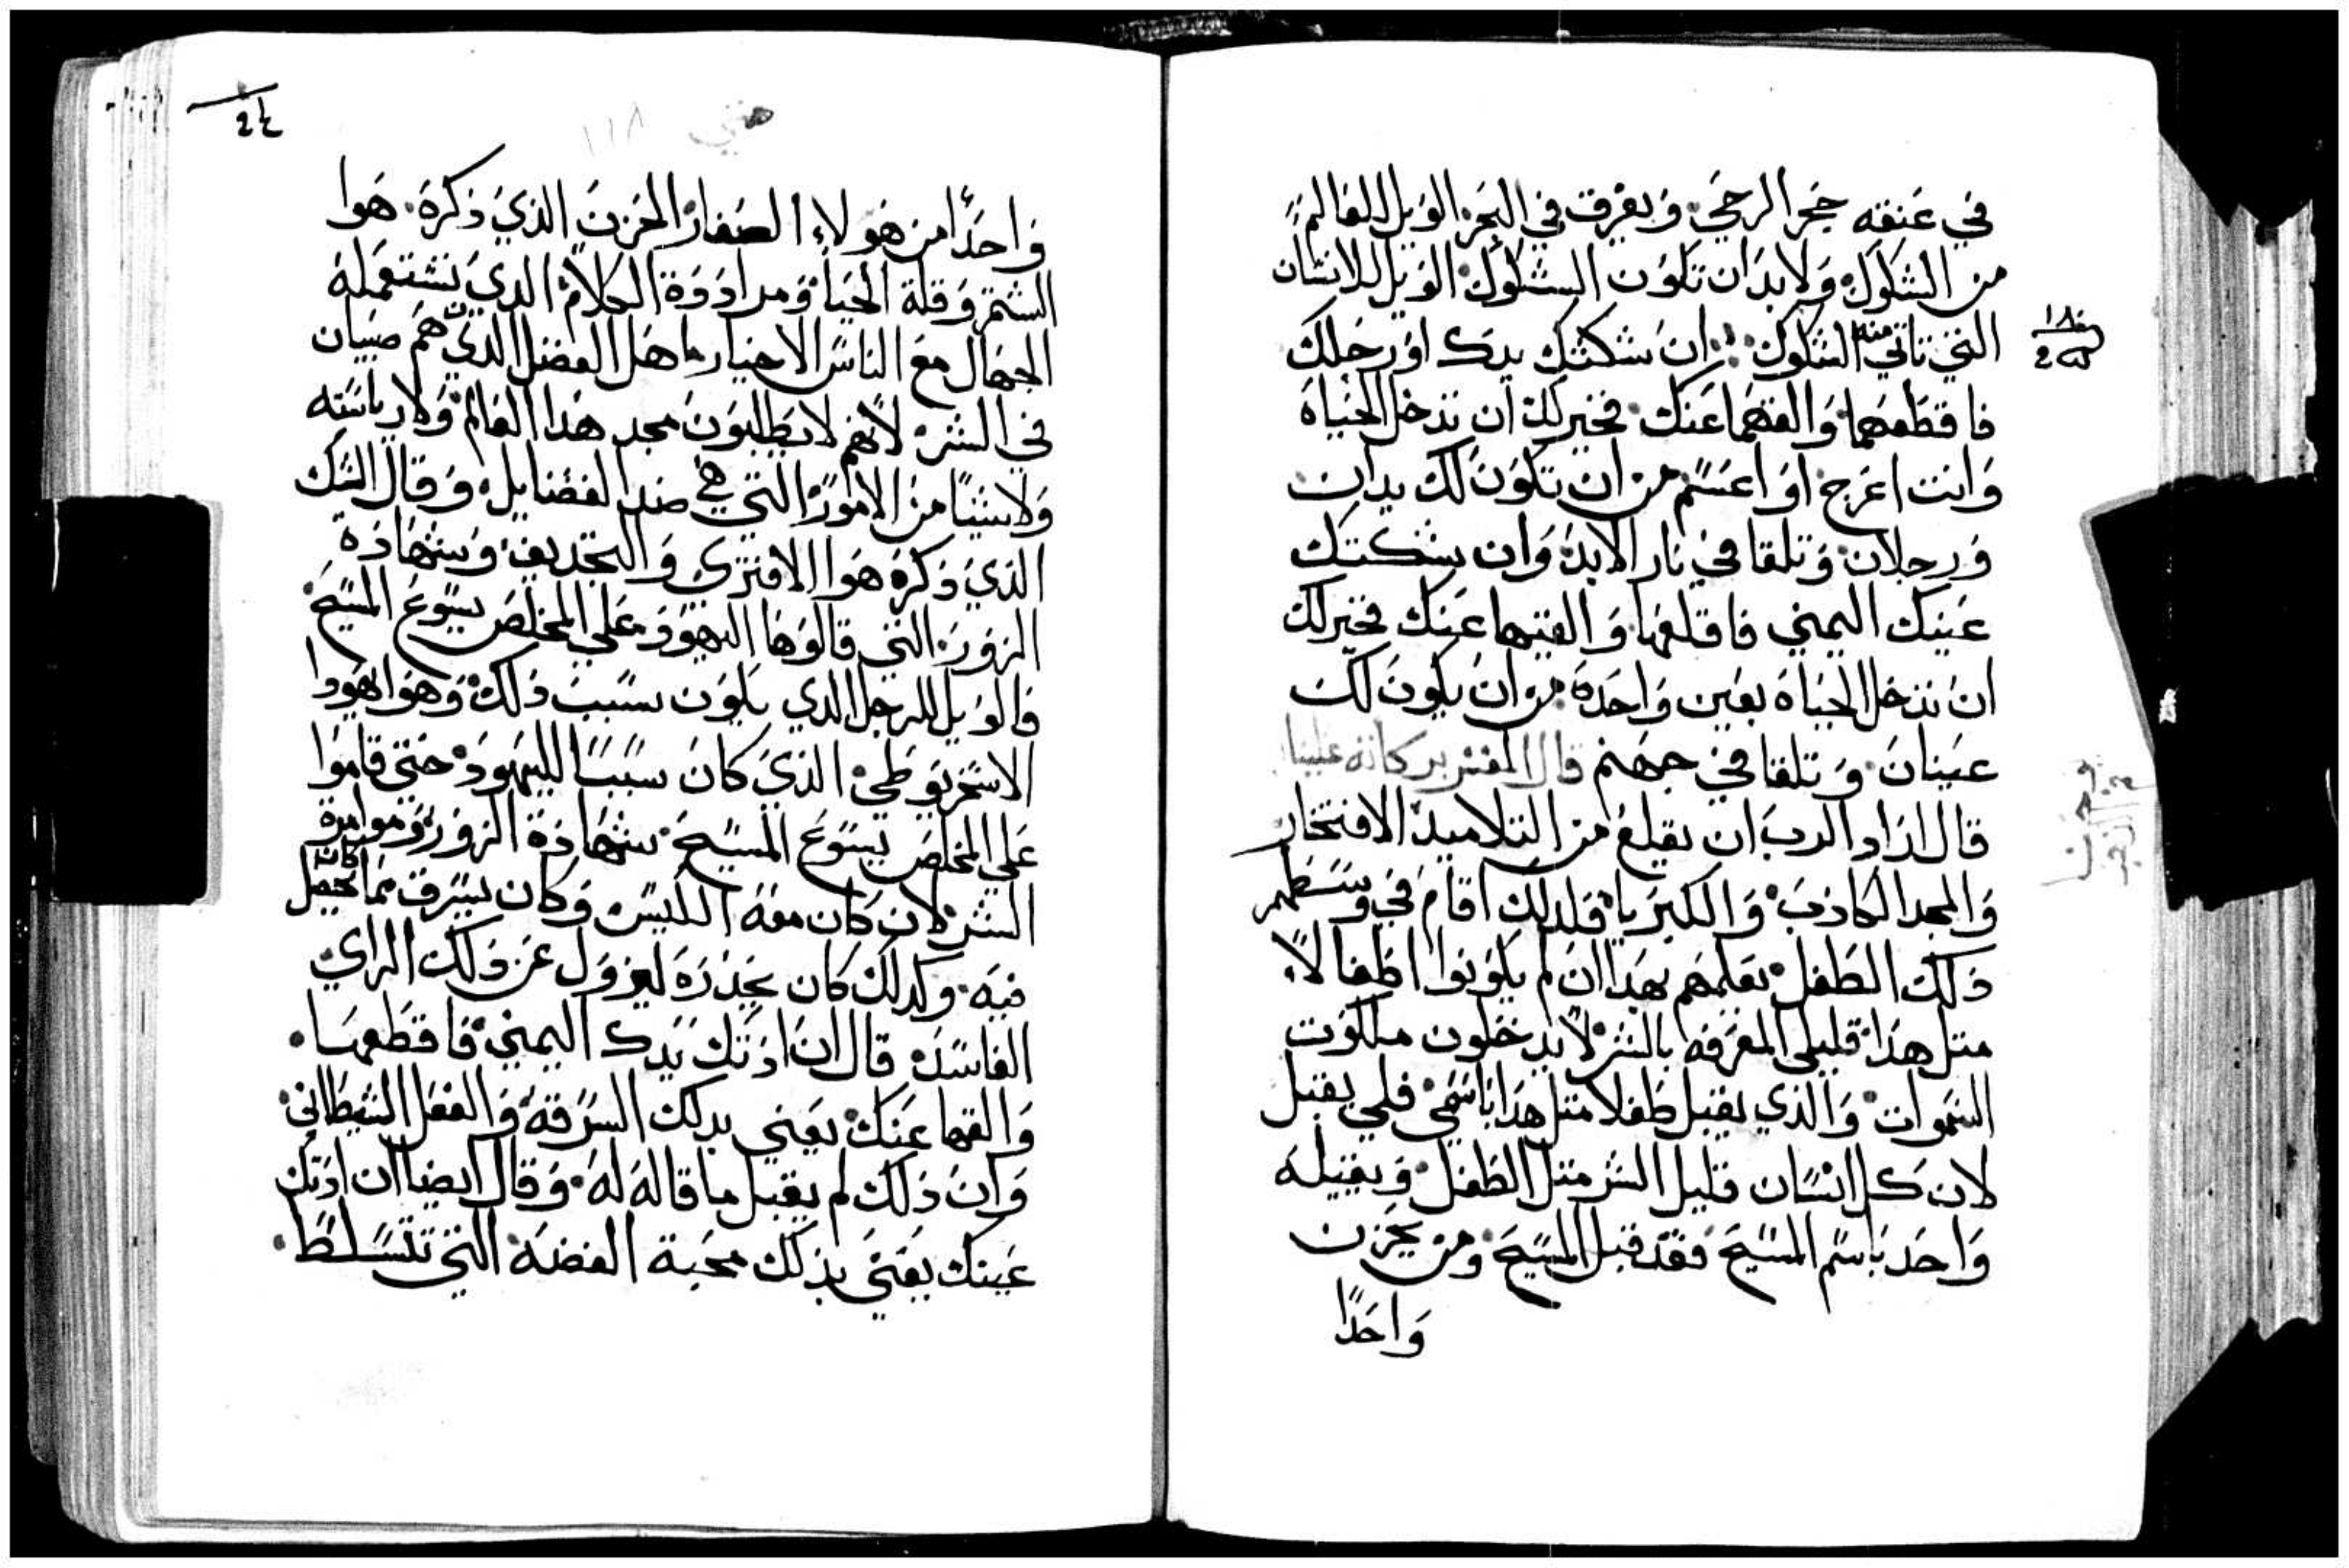 في عنقه حجر الرحي. ويغرق في البحر الويل للعالم
من الشكوك. ولا بد ان تكون الشكوك. الويل للانسان
التي تاتي منه الشكوك. ان شككتك يدك او رجلك
فاقطعهما والقهما عنك. فخير لك ان تدخل الحياه
وانت اعرج. او اعسم من ان تكون لك يدان
ورجلان وتلقا في نار الابد. وان شككتك
عينك اليمني فاقلعها. والقيها عنك فخير لك
ان تدخل الحياه بعين واحده. من ان يكون لك
عينان. وتلقا في جهنم قال المفسر بركاته علينا
قال اراد الرب ان يقلع من التلاميد الافتخار
والمجد الكاذب. والكبريا. فلدلك اقام في وسطهم
ذلك الطفل. يعلمهم بهدا ان لم يكونوا اطفالا.
متل هدا. قليلي المعرفه بالشر. لا يدخلون ملكوت
السموات. والذي يقبل طفلا متل هدا باسمي. فلي يقبل
لان كل انسان قليل الشر متل الطفل. ويقبله
واحد باسم المسيح. فقد قبل المسيح. ومن يحزن
واحدًا
متي ١١٨
واحدًا من هولاء الصغار الحزن الذي ذكره. هوا
الشتم. وقلة الحيا. ومرادوة الكلام. الدي يستعمله
الجهال مع الناس الاخيار. اهل الفضل الدين هم صبيان
في الشر. لانهم لا يطلبون مجد هدا العالم. ولا رياسته
ولا شيئا من الامور. التي هي ضد الفضايل. وقال الشك
الذي ذكره هوا الافتري والتجديف. وشهادة
الزور. التي قالوها اليهود علي المخلص يسوع المسيح
فالويل للرجل الدي يكون بسبب دلك. وهوا يهودا
الاسخريوطي. الذي كان سببا لليهود. حتي قاموا
علي المخلص يسوع المسيح. بشهادة الزور. وموامرة
الشر. لان كان معه الكيس. وكان يسرق مما كان يجعل
فيه. وكدلك كان يحذره ليزول عن ذلك الراي
الفاسد. قال ان ادتك يدك اليمني. فاقطعها.
والقها عنك. يعني بدلك السرقه. والفعل الشيطاني.
وان ذلك لم يقبل ما قاله له. وقال ايضا ان ادتك
عينك يعني بذلك محبة الفضه. التي تتسلط.